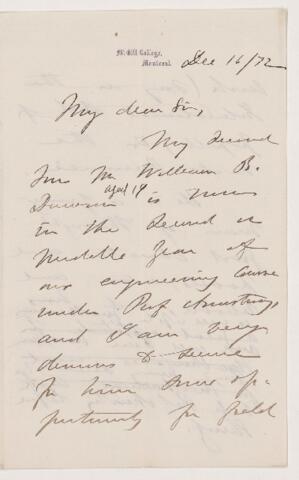 McGill College,
Montreal.
Dec 16/72
My dear Sir,
My second
Son Mr William B.
aged 19
Dawson is now
in the Second or
Middle Year of
our engineering Course
under Prof Armstrong,
and I am being
desirous to secure
for him some op-
portunity for field